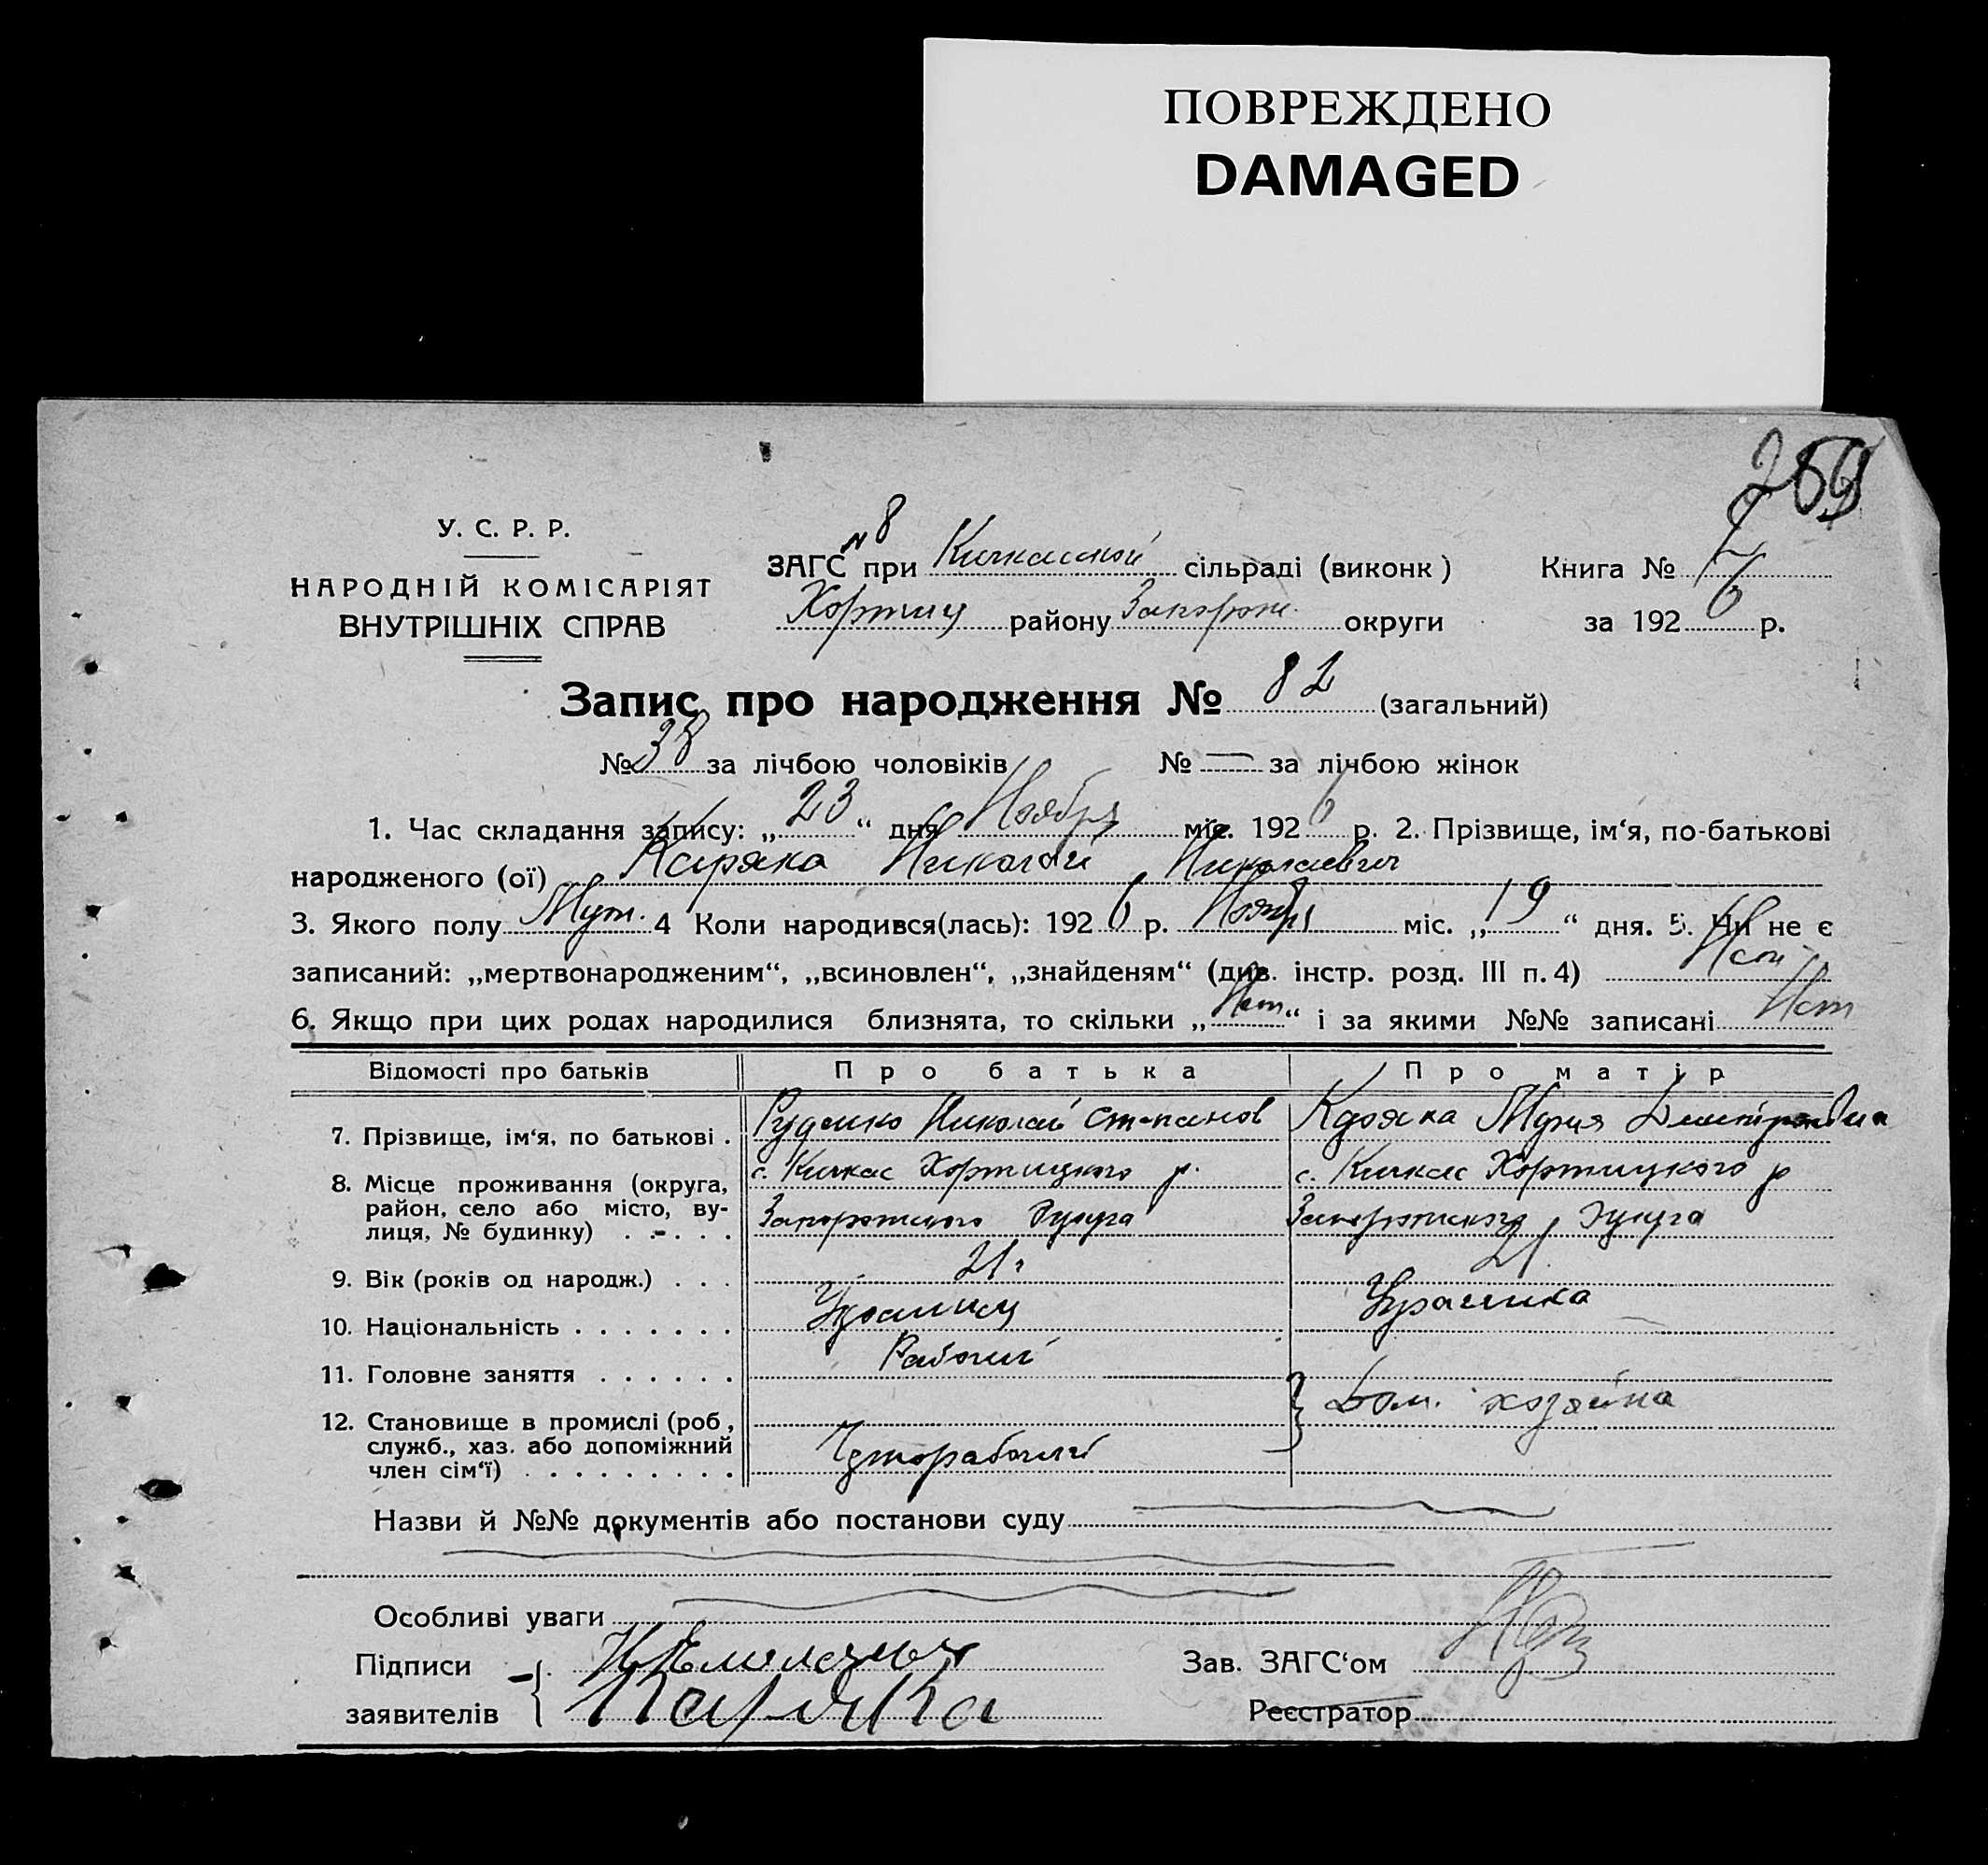 ПОВРЕЖДЕНО
DAMAGED
259
У. С. Р. Р.
НАРОДНІЙ КОМІСАРІЯТ
ВНУТРІШНІХ СПРАВ
N 8
ЗАГС при Кичкасской сільраді (виконк)
Хортиц району Запорож. округи
Книга №
за 1926 р.
Запис про народження № 82 (загальний)
№ 38 за лічбою чоловіків № — за лічбою жінок
1. Час складання запису: „23“ дня Ноября міс. 1926 р. 2. Прізвище, ім‘я, по-батькові
народженого (ої) Каряка Николай Николаевич
3. Якого полу Муж. 4 Коли народився(лась): 1926 р. Ноября міс. „19“ дня. 5. Чи не є
записаний: „мертвонародженим“, „всиновлен“, „знайденям“ (див. інстр. розд. III п. 4) Нет
6. Якщо при цих родах народилися близнята, то скільки „Нет“ і за якими №№ записані Нет
Відомості про батьків Про батька Про матір
7. Прізвище, ім‘я, по батькові . Руденко Николай Степанов Каряка Мария Дмитровна
8. Місце проживання (округа, с. Кичкас Хортицкого р. с. Кичкас Хортицкого р
район, село або місто, ву- Запорожского Округа Запорожского Округа
лиця, № будинку) . . . . .
9. Вік (років од народж.) . . . 21 г 21
10. Національність . . . . . . . Украинец Украинка
11. Головне заняття . . . . . . Рабочий
12. Становище в промислі (роб., Дом. хозяйка
служб., хаз. або допоміжний Чернорабочий
член сім‘ї) . . . . . . . . .
Назви й №№ документів або постанови суду
Особливі уваги
Підписи Зав. ЗАГС‘ом
заявителів Каряка Реєстратор